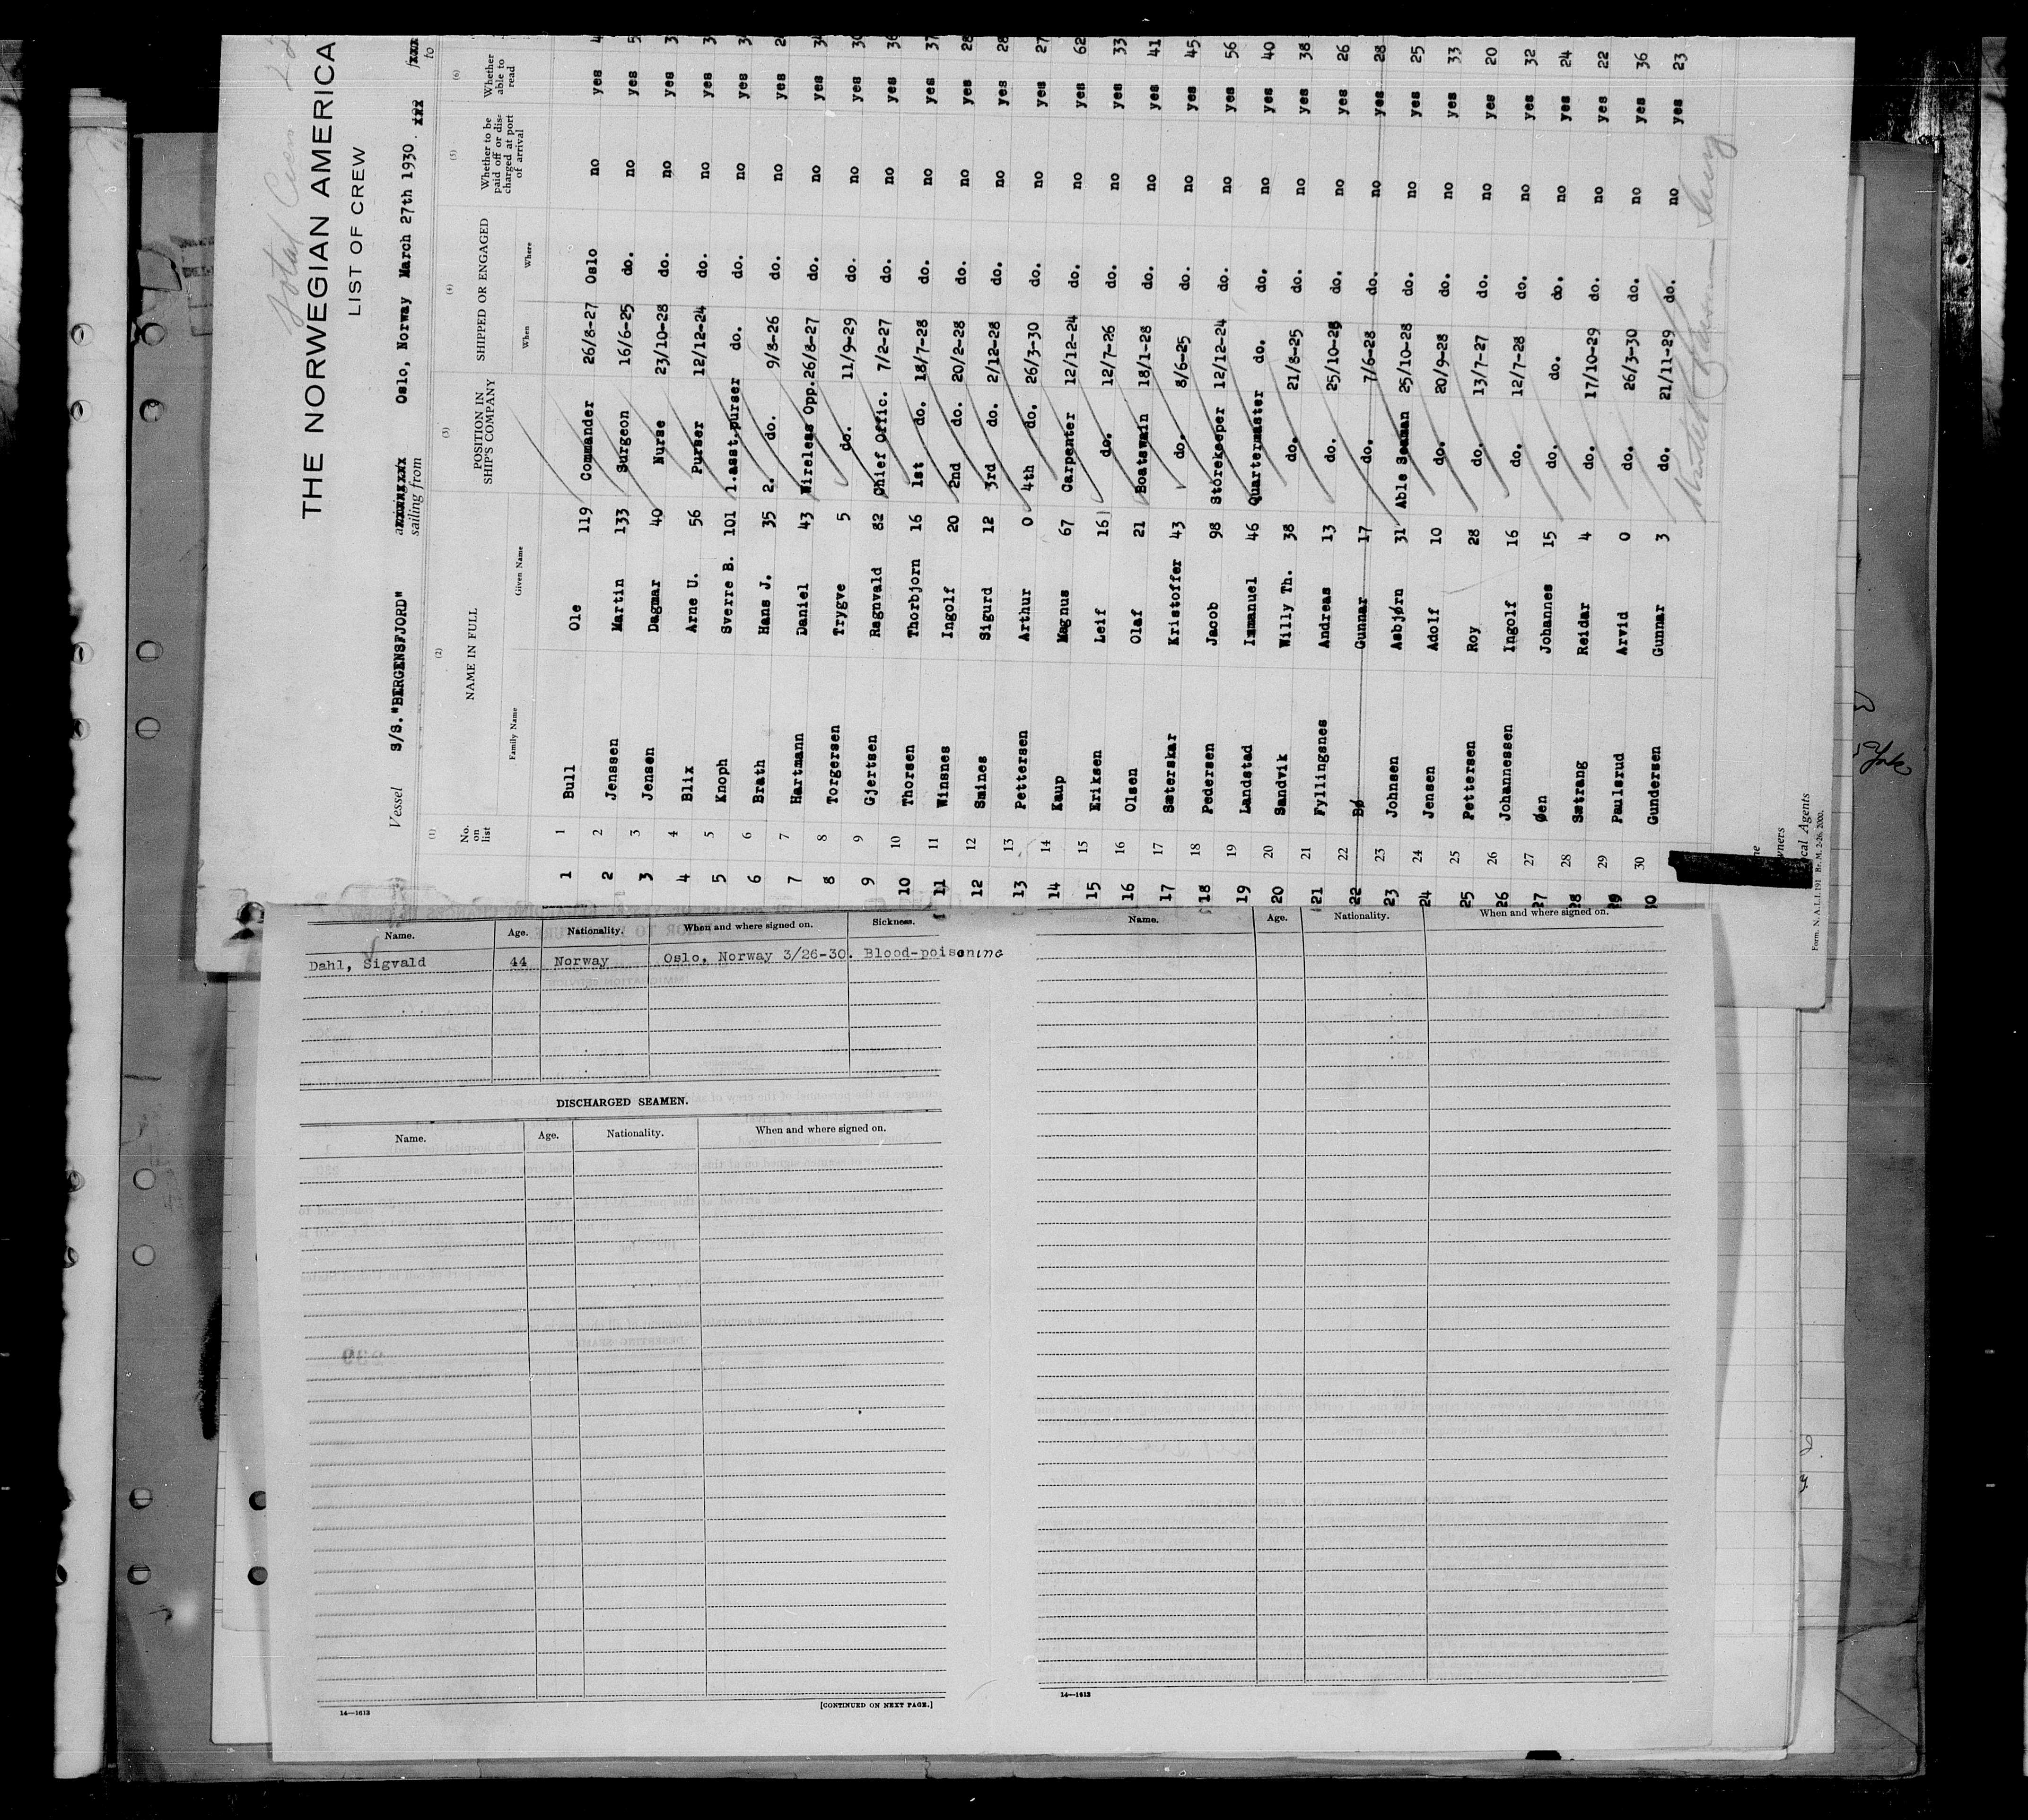 THE NORWEGIAN AMERICA
LIST OF CREW
Total Crew
Vessel S/S. "BERGENSFJORD" sailing from Oslo, Norway March 27th 1930. to
(1) (2) (3) (4) (5) (6)
No. on list NAME IN FULL POSITION IN SHIP'S COMPANY SHIPPED OR ENGAGED Whether to be paid off or discharged at port of arrival Whether able to read
Family Name Given Name When Where
1 1 Bull Ole 119 Commander 26/8-27 Oslo no yes 4
2 2 Jenssen Martin 133 Surgeon 16/6-25 do. no yes 5
3 3 Jensen Dagmar 40 Nurse 23/10-28 do. no yes 3
4 4 Blix Arne U. 56 Purser 12/12-24 do. no yes 3
5 5 Knoph Sverre B. 101 1.asst.purser do. do. no yes 3
6 6 Brath Hans J. 35 2. do. 9/8-26 do. no yes 2
7 7 Hartmann Daniel 43 Wireless Opp. 26/8-27 do. no yes 34
8 8 Torgersen Trygve 5 do. 11/9-29 do. no yes 30
9 9 Gjertsen Ragnvald 82 Chief Offic. 7/2-27 do. no yes 36
10 10 Thorsen Thorbjorn 16 1st do. 18/7-28 do. no yes 37
11 11 Winsnes Ingolf 20 2nd do. 20/2-28 do. no yes 28
12 12 Smines Sigurd 12 3rd do. 2/12-28 do. no yes 28
13 13 Pettersen Arthur 0 4th do. 26/3-30 do. no yes 27
14 14 Kaup Magnus 67 Carpenter 12/12-24 do. no yes 62
15 15 Eriksen Leif 16 do. 12/7-26 do. no yes 33
16 16 Olsen Olaf 21 Boatswain 18/1-28 do. no yes 41
17 17 Sæterskar Kristoffer 43 do. 8/6-25 do. no yes 45
18 18 Pedersen Jacob 98 Storekeeper 12/12-24 do. no yes 56
19 19 Landstad Immanuel 46 Quartermaster do. do. no yes 40
20 20 Sandvik Willy Th. 38 do. 21/8-25 do. no yes 38
21 21 Fyllingsnes Andreas 13 do. 25/10-28 do. no yes 26
22 22 Bø Gunnar 17 do. 7/6-28 do. no yes 28
23 23 Johnsen Asbjørn 31 Able Seaman 25/10-28 do. no yes 25
24 24 Jensen Adolf 10 do. 20/9-28 do. no yes 33
25 25 Pettersen Roy 28 do. 13/7-27 do. no yes 20
26 26 Johannessen Ingolf 16 do. 12/7-28 do. no yes 32
27 27 Øen Johannes 15 do. do. do. no yes 24
28 28 Sætrang Reidar 4 do. 17/10-29 do. no yes 22
29 29 Paulsrud Arvid 0 do. 26/3-30 do. no yes 36
30 30 Gundersen Gunnar 3 do. 21/11-29 do. no yes 23
Local Agents
Form. N. A. L. I. 191 Br. M. 2-26. 2000.
Name. Age. Nationality. When and where signed on. Sickness.
Dahl, Sigvald 44 Norway Oslo, Norway 3/26-30. Blood-poisoning
DISCHARGED SEAMEN.
Name. Age. Nationality. When and where signed on.
14—1613 [CONTINUED ON NEXT PAGE.]
Name. Age. Nationality. When and where signed on.
14—1613